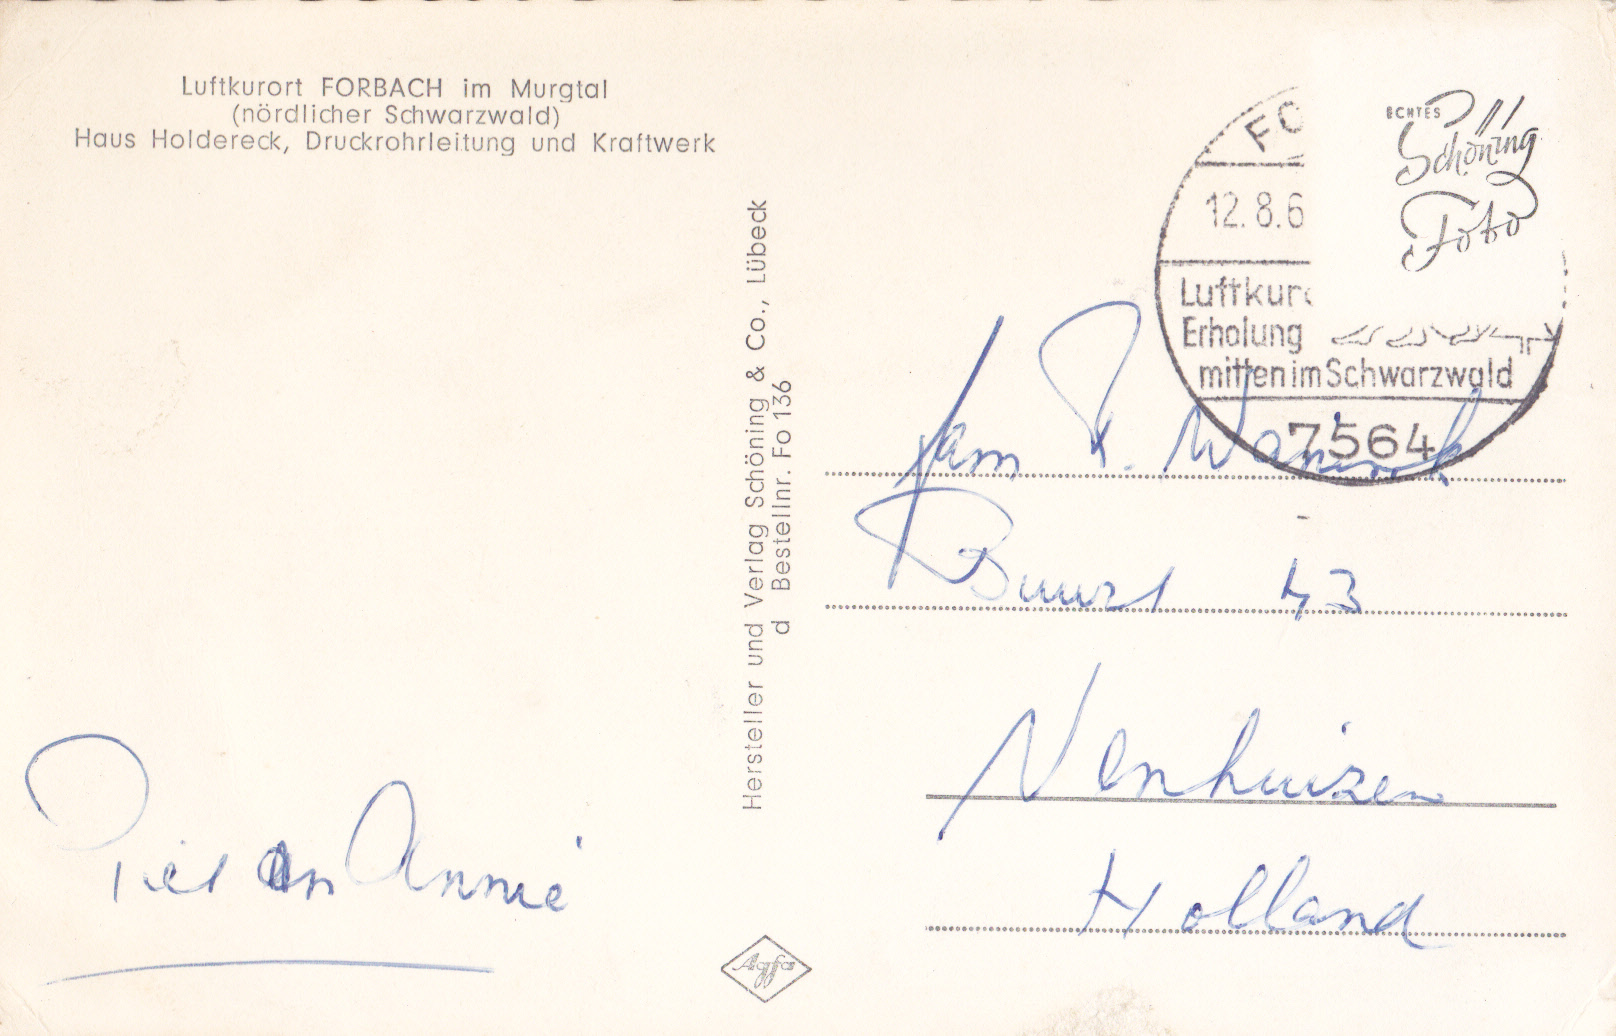 Luftkurort FORBACH im Murgtal
(nördlicher Schwarzwald)
Haus Holdereck, Druckrohrleitung und Kraftwerk
Piet en Annie
Hersteller und Verlag Schöning & Co., Lübeck
d Bestellnr. Fo 136
Agfa
ECHTES
Schöning
Foto
FO
12.8.6
Luftkuro
Erholung
mitten im Schwarzwald
7564
Fam
Buurt 43
Nenhuizen
Holland